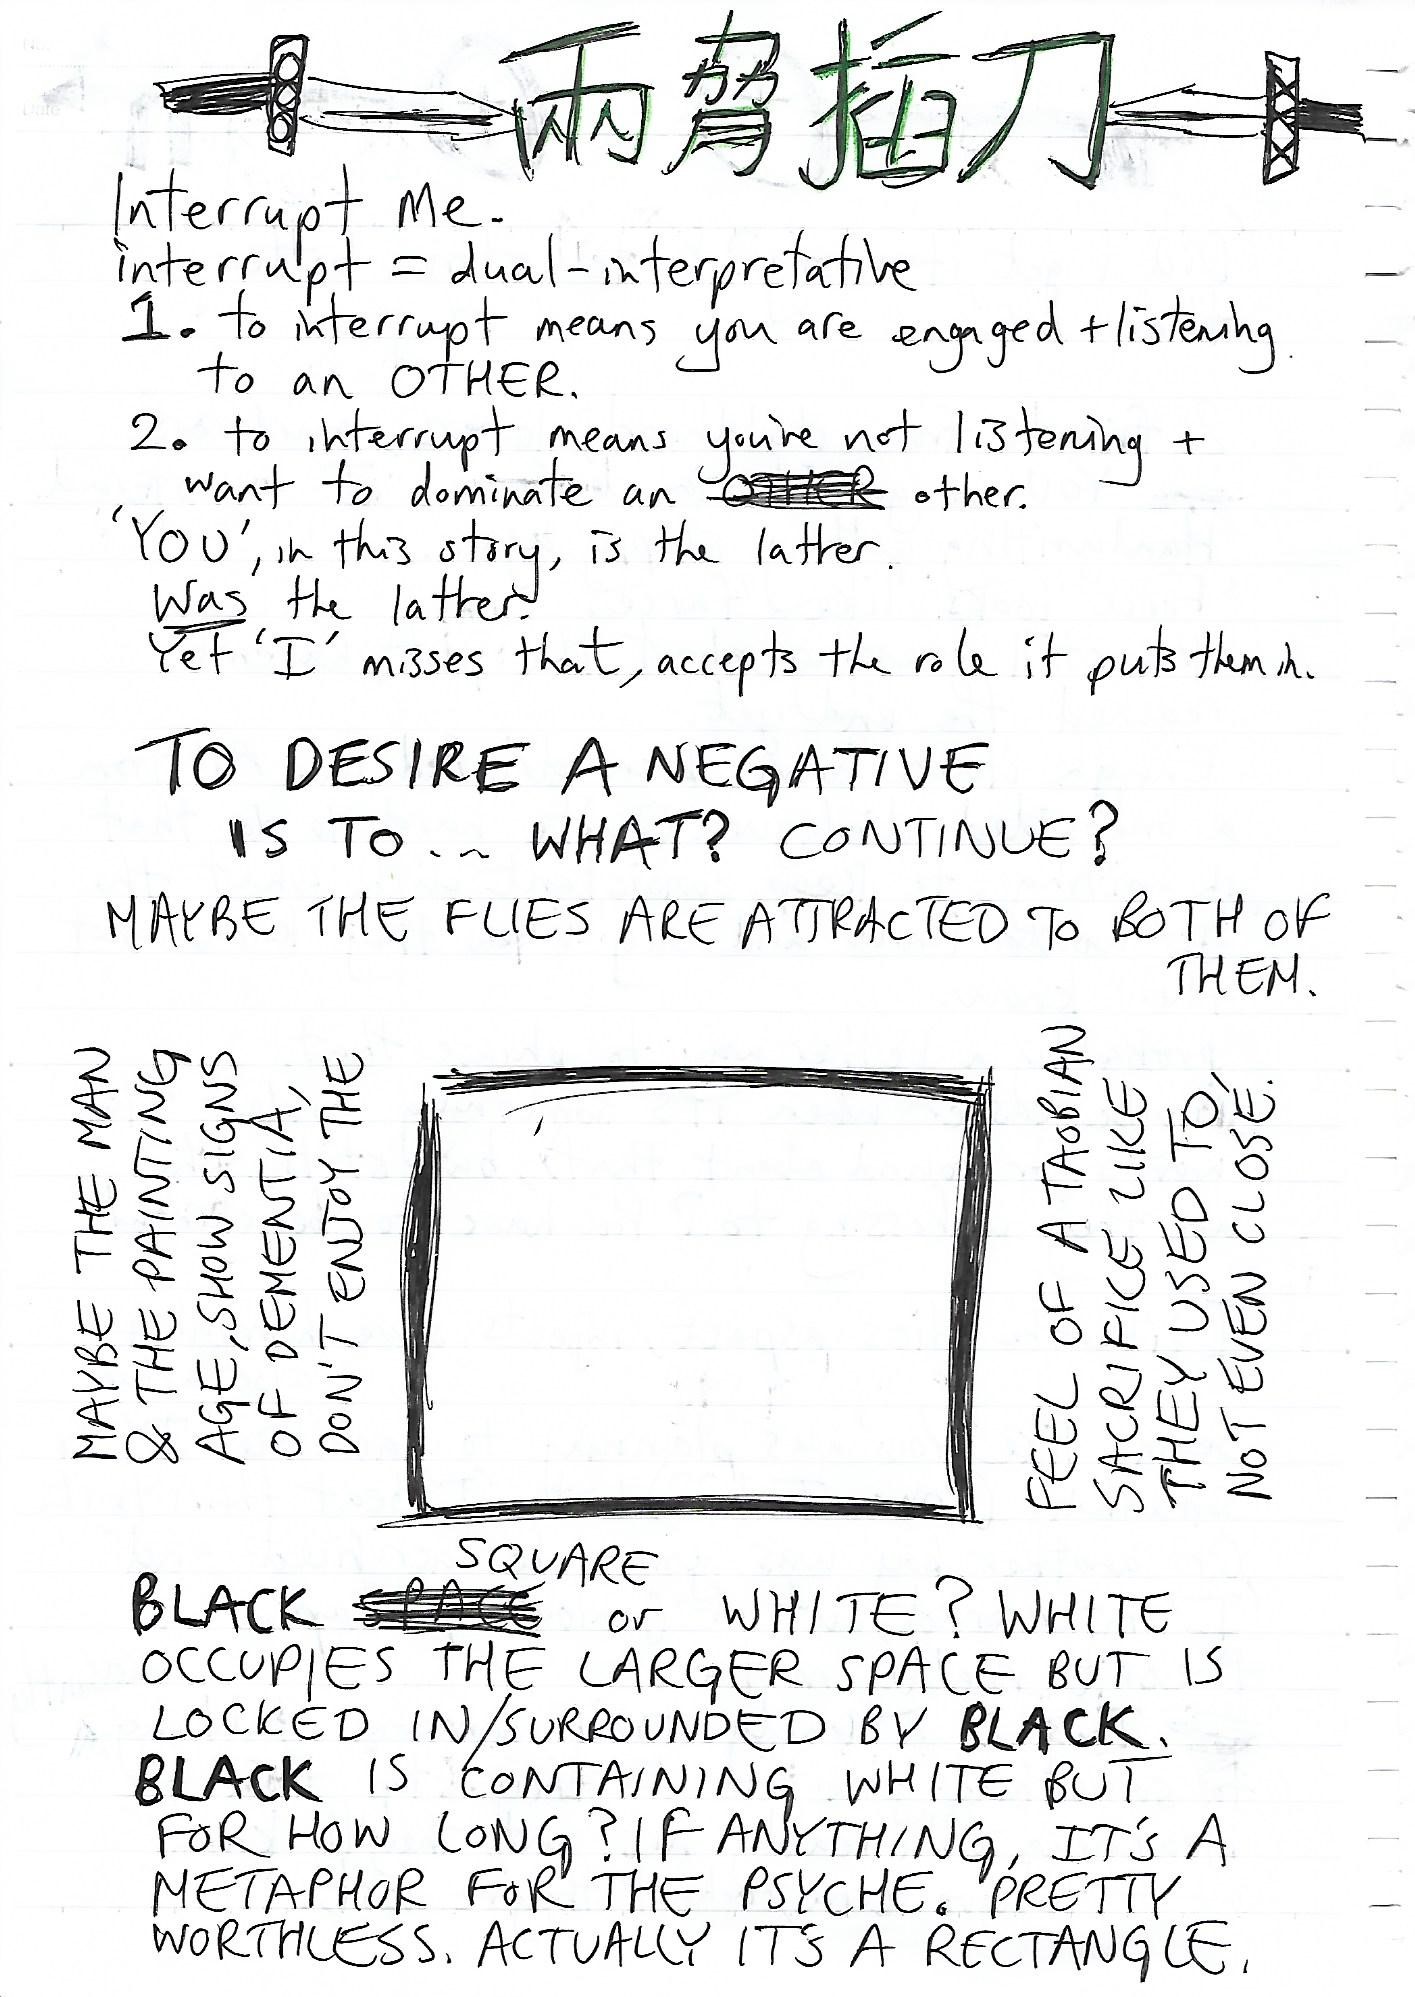 兩脅插刀
Interrupt Me.
interrupt = dual-interpretative
1. to interrupt means you are engaged + listening
to an OTHER.
2. to interrupt means you're not listening +
want to dominate an OTHER other.
'YOU', in this story, is the latter.
Was the latter.
Yet 'I' misses that, accepts the role it puts them in.
TO DESIRE A NEGATIVE
IS TO... WHAT? CONTINUE?
MAYBE THE FLIES ARE ATTRACTED TO BOTH OF
THEM.
MAYBE THE MAN
& THE PAINTING
AGE, SHOW SIGNS
OF DEMENTIA,
DON'T ENJOY THE
FEEL OF A TAOBIAN
SACRIFICE LIKE
THEY USED TO,
NOT EVEN CLOSE.
SQUARE
BLACK SPACE or WHITE? WHITE
OCCUPIES THE LARGER SPACE BUT IS
LOCKED IN/SURROUNDED BY BLACK.
BLACK IS CONTAINING WHITE BUT
FOR HOW LONG? IF ANYTHING, IT'S A
METAPHOR FOR THE PSYCHE. PRETTY
WORTHLESS. ACTUALLY IT'S A RECTANGLE.